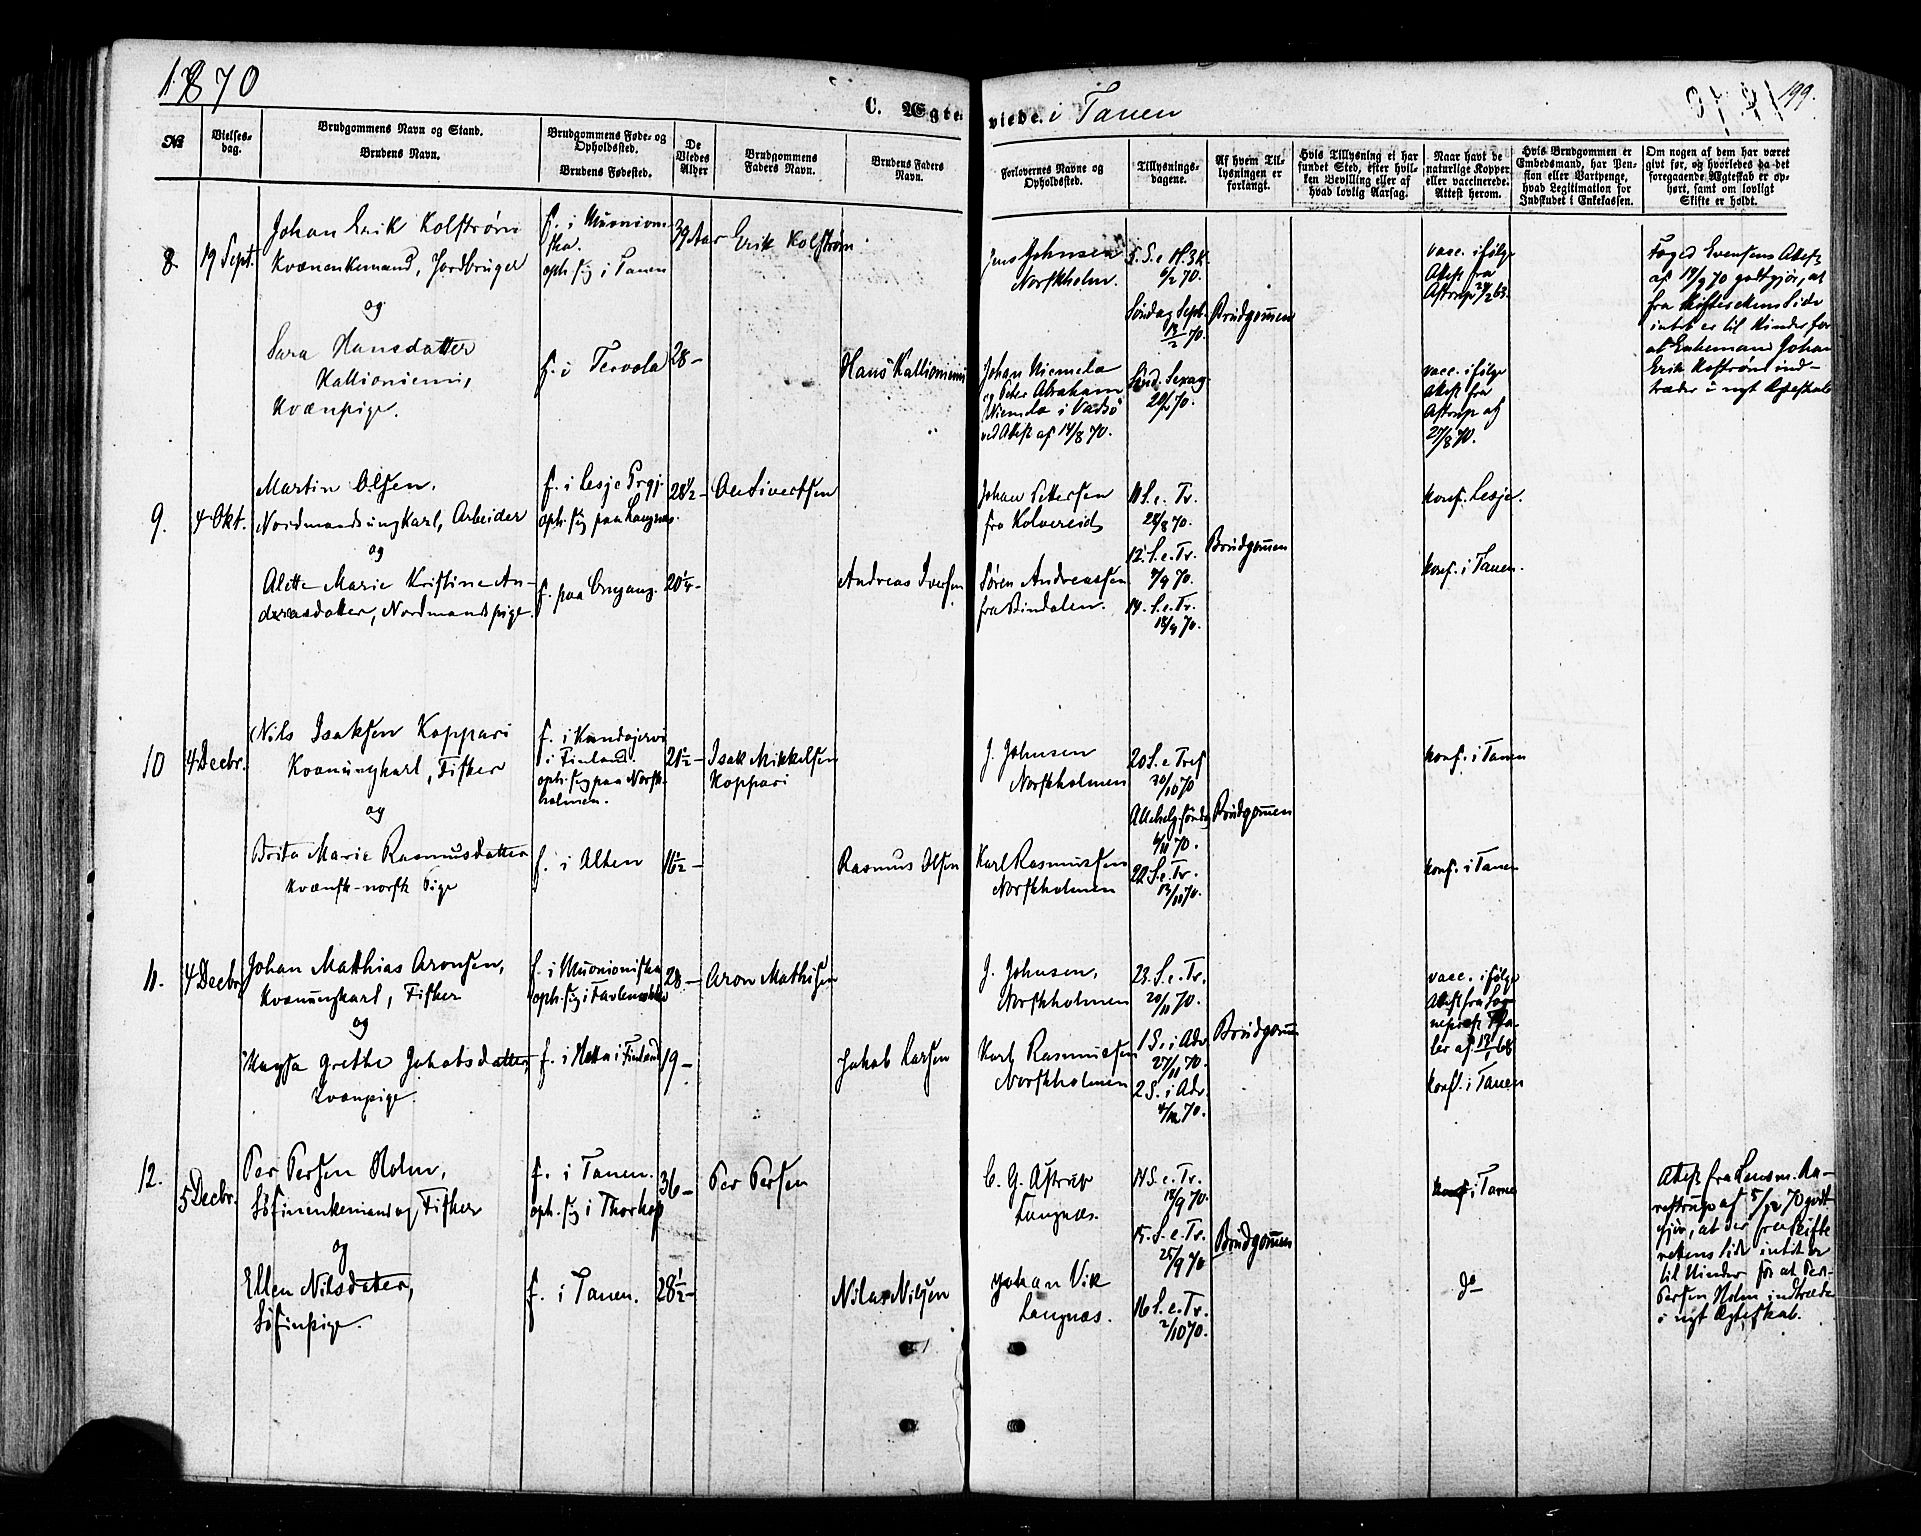 1870
C. Ægteviede i Tanen
199.
No
Vielses-
dag.
Brudgommens Navn og Stand.
Brudens Navn.
Brudgommens Føde- og
Opholdssted.
Brudens Fødested.
De
Viedes
Alder
Brudgommens
Faders Navn.
Brudens Faders
Navn.
Forlovernes Navne og
Opholdssted.
Tillysnings-
dagene.
Af hvem Til-
lysningen er
forlangt.
Hvis Tillysning ei har
fundet Sted, efter hvil-
ken Bevilling eller af
hvad lovlig Aarsag.
Naar havt de
naturlige Kopper
eller vaccinerede.
Attest herom.
Hvis Brudgommen er
Embedsmand, har Pen-
sion eller Vartpenge,
hvad Legitimation for
Indskudet i Enkekassen.
Om nogen af dem har været
gift før, og hvorledes da det
foregaaende Ægteskab er op-
hørt, samt om lovligt
Skifte er holdt.
8.
19 Sept.
Johan Erik Kolstrøm
Kvænenkemand, Jordbruger
og
Sara Hansdatter
Kallioniemi,
Kvænpige.
f. i Muonion-
ska.
oph. sig i Tanen
f. i Tervola
39 Aar
28 –
Erik Kolstrøm
Hans Kallioniemi
Jens Johnsen
Norskholm.
Johan Niemela
og Peter Abraham
Niemela i Vadsø
ved Attest af 14/8 70.
5. S. e. H. 3 K.
6/2 70.
Søndag Sept.
13/2 70.
Sønd. Sexag.
20/2 70.
Brudgommen
vacc. ifølge
Attest fra
Astrup 24/2 63.
vacc. ifølge
Attest fra
Astrup af
27/8 70.
Foged Evensens Attest
af 19/9 70 godtgjør, at
fra Skifterettens Side
intet er til Hinder for
at Enkemand Johan
Erik Kolstrøm ind-
træder i nyt Ægteskab
9.
4 Okt.
Martin Olsen,
Nordmandsungkarl, Arbeider
og
Alette Marie Kristine An-
dreasdatter, Nordmandspige.
f. i Lesje Prgj.
oph. sig paa Langnæs.
f. paa Omgang.
28½ –
20¼ –
Ole Sivertsen
Andreas Iversen
Johan Pettersen
fra Kolvereid
Søren Andreassen
fra Bindalen.
11 S. e. Tr.
28/8 70.
12. S. e. Tr.
4/9 70.
14. S. e. Tr.
18/9 70.
Brudgommen
konf. Lesje.
konf. i Tanen.
10
4 Decbr.
Nils Isaksen Koppari
Kvænungkarl, Fisker
og
Brita Marie Rasmusdatter
kvænsk-norsk Pige
f. i
i Finland.
oph. sig paa Norsk-
holmen.
f. i Alten
21½ –
Isak Mikkelsen
Koppari
Rasmus Olsen
J. Johnsen
Norskholmen
Karl Rasmussen
Norskholmen
20 S. e. Tref
30/10 70
Allehelg. søndag
6/11 70.
22. S. e. Tr.
13/11 70.
Brudgommen
konf. i Tanen
konf. i Tanen
11.
4 Decbr.
Johan Matthias Aronsen,
Kvænungkarl, Fisker
og
Maysa Grethe Jakobsdatter,
Kvænpige.
f. i Muonioniska
oph. sig i
f. i Hetta i Finland
28. –
19 –
Aron Mathisen
Jakob Larsen
J. Johnsen,
Norskholmen
Karl Rasmussen
Norskholmen
23. S. e. Tr.
20/11 70.
1 S. i Adv.
27/11 70.
2 S. i Adv.
4/12 70.
Brudgomm
vacc. ifølge
Attest fra Sog-
neprest
af 13/1 68
konf. i Tanen
12.
5 Decbr.
Per Persen Holm,
Søfinenkemand og Fisker
og
Ellen Nilsdatter,
Søfinpige.
f. i Tanen.
oph. sig i Thorhop
f. i Tanen.
36 –
28½ –
Per Persen
Nilas Nilsen
C. G. Astrup
Langnæs.
Johan Vik
Langnæs.
14 S. e. Tr.
18/9 70.
15. S. e. Tr.
25/9 70
16 S. e. Tr.
2/10 70.
Brudgommen
konf. i Tanen
do
Attest fra Lensm. Aa-
restrup af 5/12 70 godt-
gjør, at der fra Skifte-
rettens Side intet er
til Hinder for at Per
Persen Holm indtræder
i nyt Ægteskab.